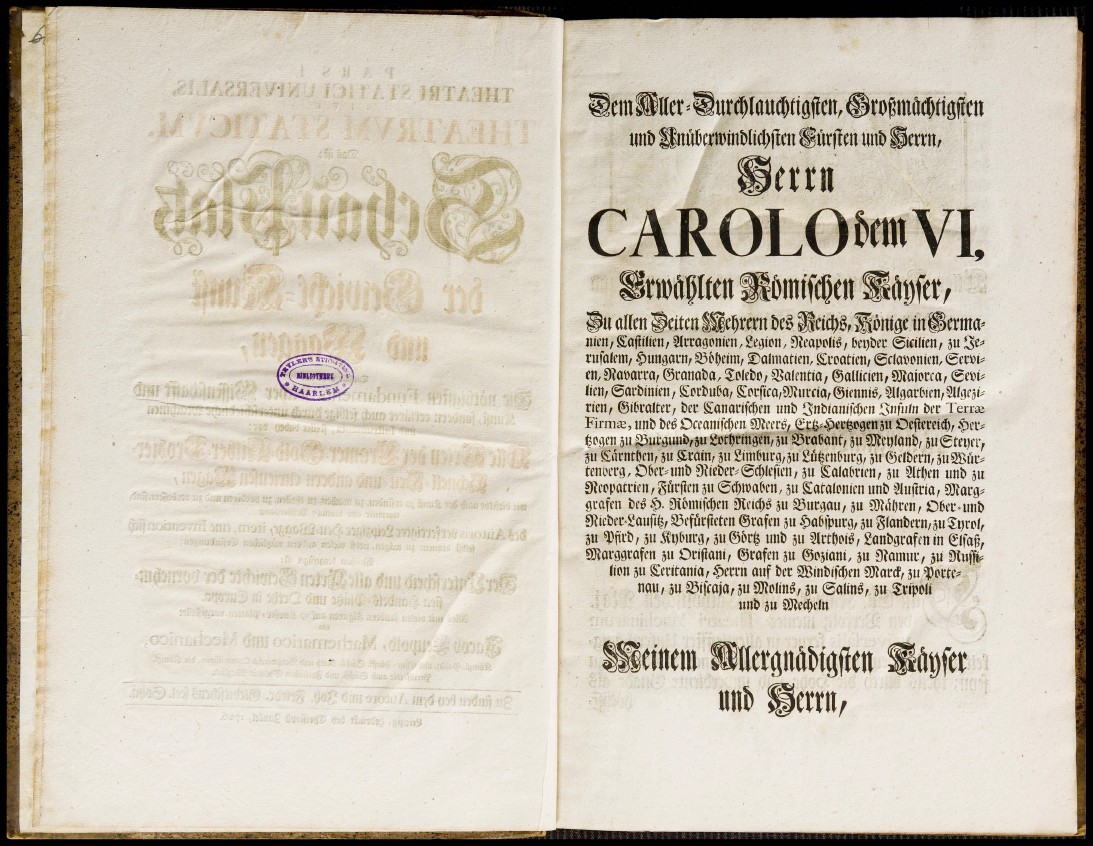 6
PARS I
THEATRI STATICI UNIVERSALIS,
THEATRVM STATICVM.
Das ist:
Schau-Platz
der Gewicht-Kunst
und Waagen,
TEYLER'S STICHTING
BIBLIOTHEEK
HAARLEM
Jacob Leupold, Mathematico und Mechanico,
Dem Aller-Durchlauchtigsten, Großmächtigsten
und Unüberwindlichsten Fürsten und Herrn,
Herrn
CAROLO dem VI,
Erwählten Römischen Käyser,
Zu allen Zeiten Mehrern des Reichs, Könige in Germa-
nien, Castilien, Arragonien, Legion, Neapolis, beyder Sicilien, zu Je-
rusalem, Hungarn, Böheim, Dalmatien, Croatien, Sclavonien, Servi-
en, Navarra, Granada, Toledo, Valentia, Gallicien, Majorca, Sevi-
lien, Sardinien, Corduba, Corsica, Murcia, Giennis, Algarbien, Algezi-
rien, Gibralter, der Canarischen und Indianischen Insuln der Terræ
Firmæ, und des Oceanischen Meers, Ertz-Hertzogen zu Oesterreich, Her-
tzogen zu Burgund, zu Lothringen, zu Brabant, zu Meyland, zu Steyer,
zu Cärnthen, zu Crain, zu Limburg, zu Lützenburg, zu Geldern, zu Wür-
tenberg, Ober- und Nieder-Schlesien, zu Calabrien, zu Athen und zu
Neopatrien, Fürsten zu Schwaben, zu Catalonien und Austria, Marg-
grafen des H. Römischen Reichs zu Burgau, zu Mähren, Ober- und
Nieder-Lausitz, Befürsteten Grafen zu Habspurg, zu Flandern, zu Tyrol,
zu Pfird, zu Kyburg, zu Görtz und zu Arthois, Landgrafen in Elsaß,
Marggrafen zu Oristani, Grafen zu Goziani, zu Namur, zu Russi-
lion zu Ceritania, Herrn auf der Windischen Marck, zu Porte-
nau, zu Biscaja, zu Molins, zu Salins, zu Tripoli
und zu Mecheln
Meinem Allergnädigsten Käyser
und Herrn,